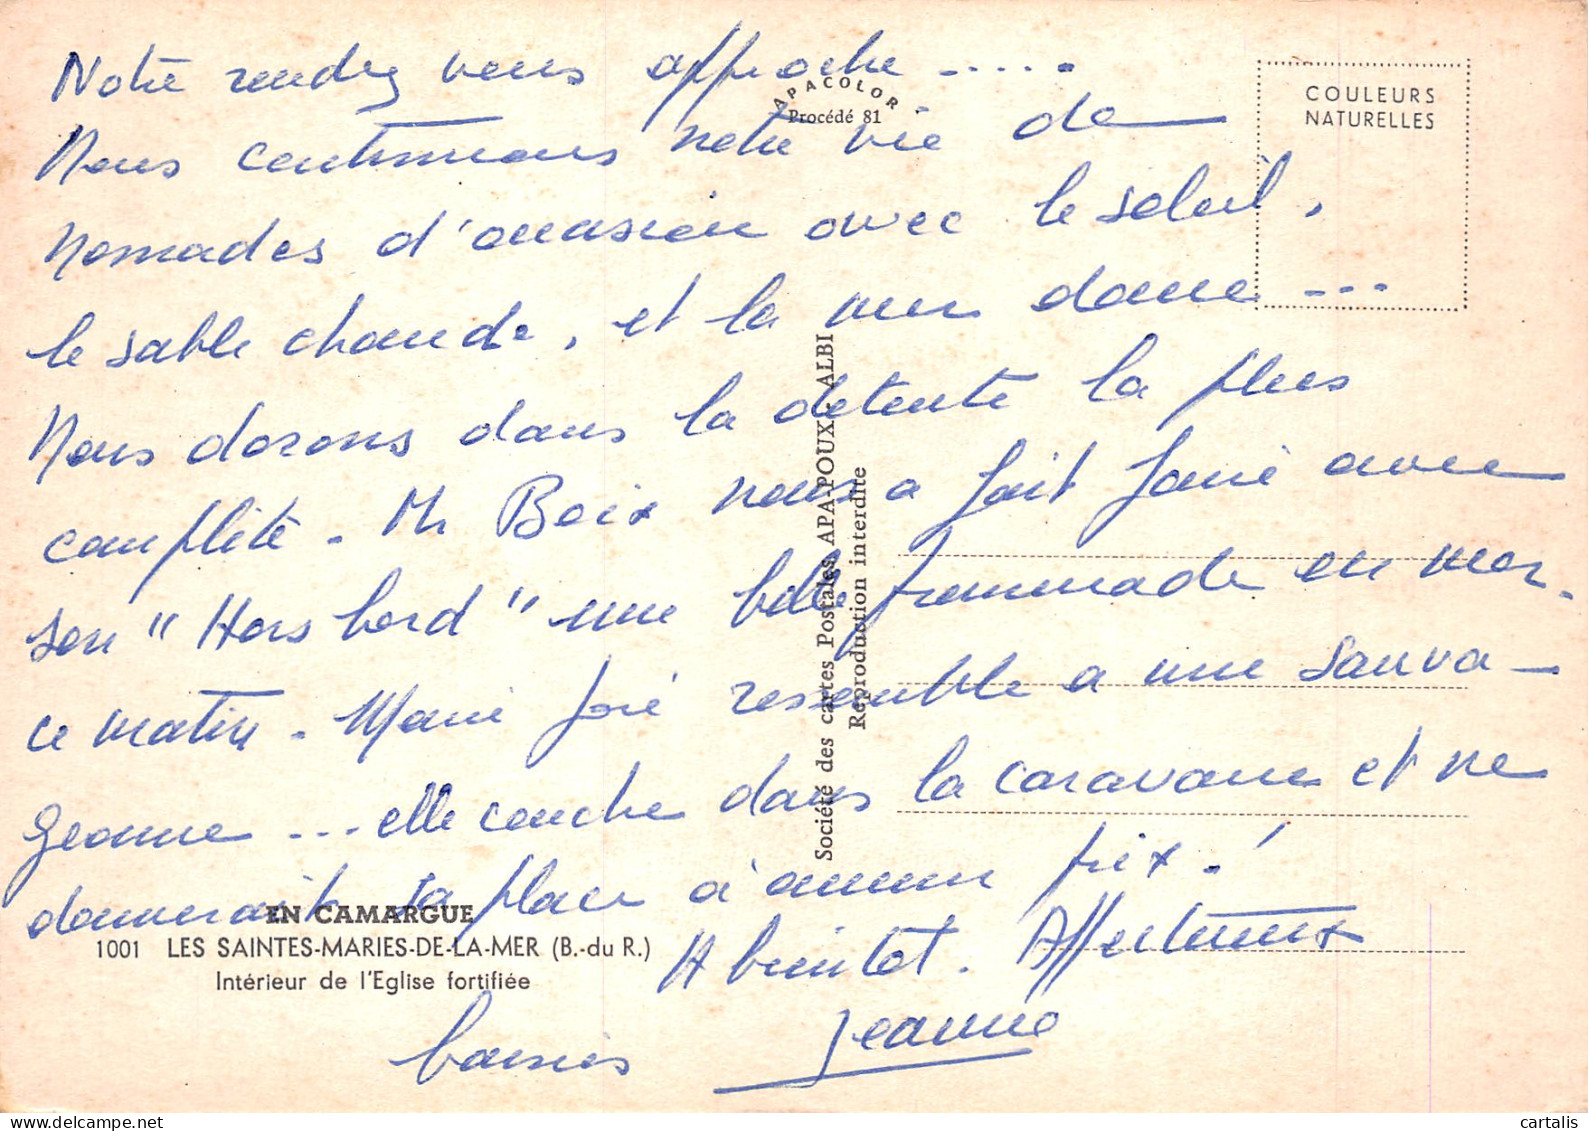 Notre rendez vous approche .....
APACOLOR
Procédé 81
COULEURS
NATURELLES
Nous continuons notre vie de
nomades d'occasion avec le soleil,
le sable chaude, et la mer douce ...
Nous dorons dans la détente la plus
complète. Mr Boix nous a fait faire avec
son "Hors bord" une belle promenade en mer.
ce matin. Marie José ressemble a une sauva-
geonne ... elle couche dans la caravane et ne
donnerait sa place à aucun prix.!
A bientot. Affectueux
baisers Jeanne
Société des cartes Postales APA-POUX - ALBI
Reproduction interdite
EN CAMARGUE
1001 LES SAINTES-MARIES-DE-LA-MER (B.-du R.)
Intérieur de l'Eglise fortifiée
cartalis